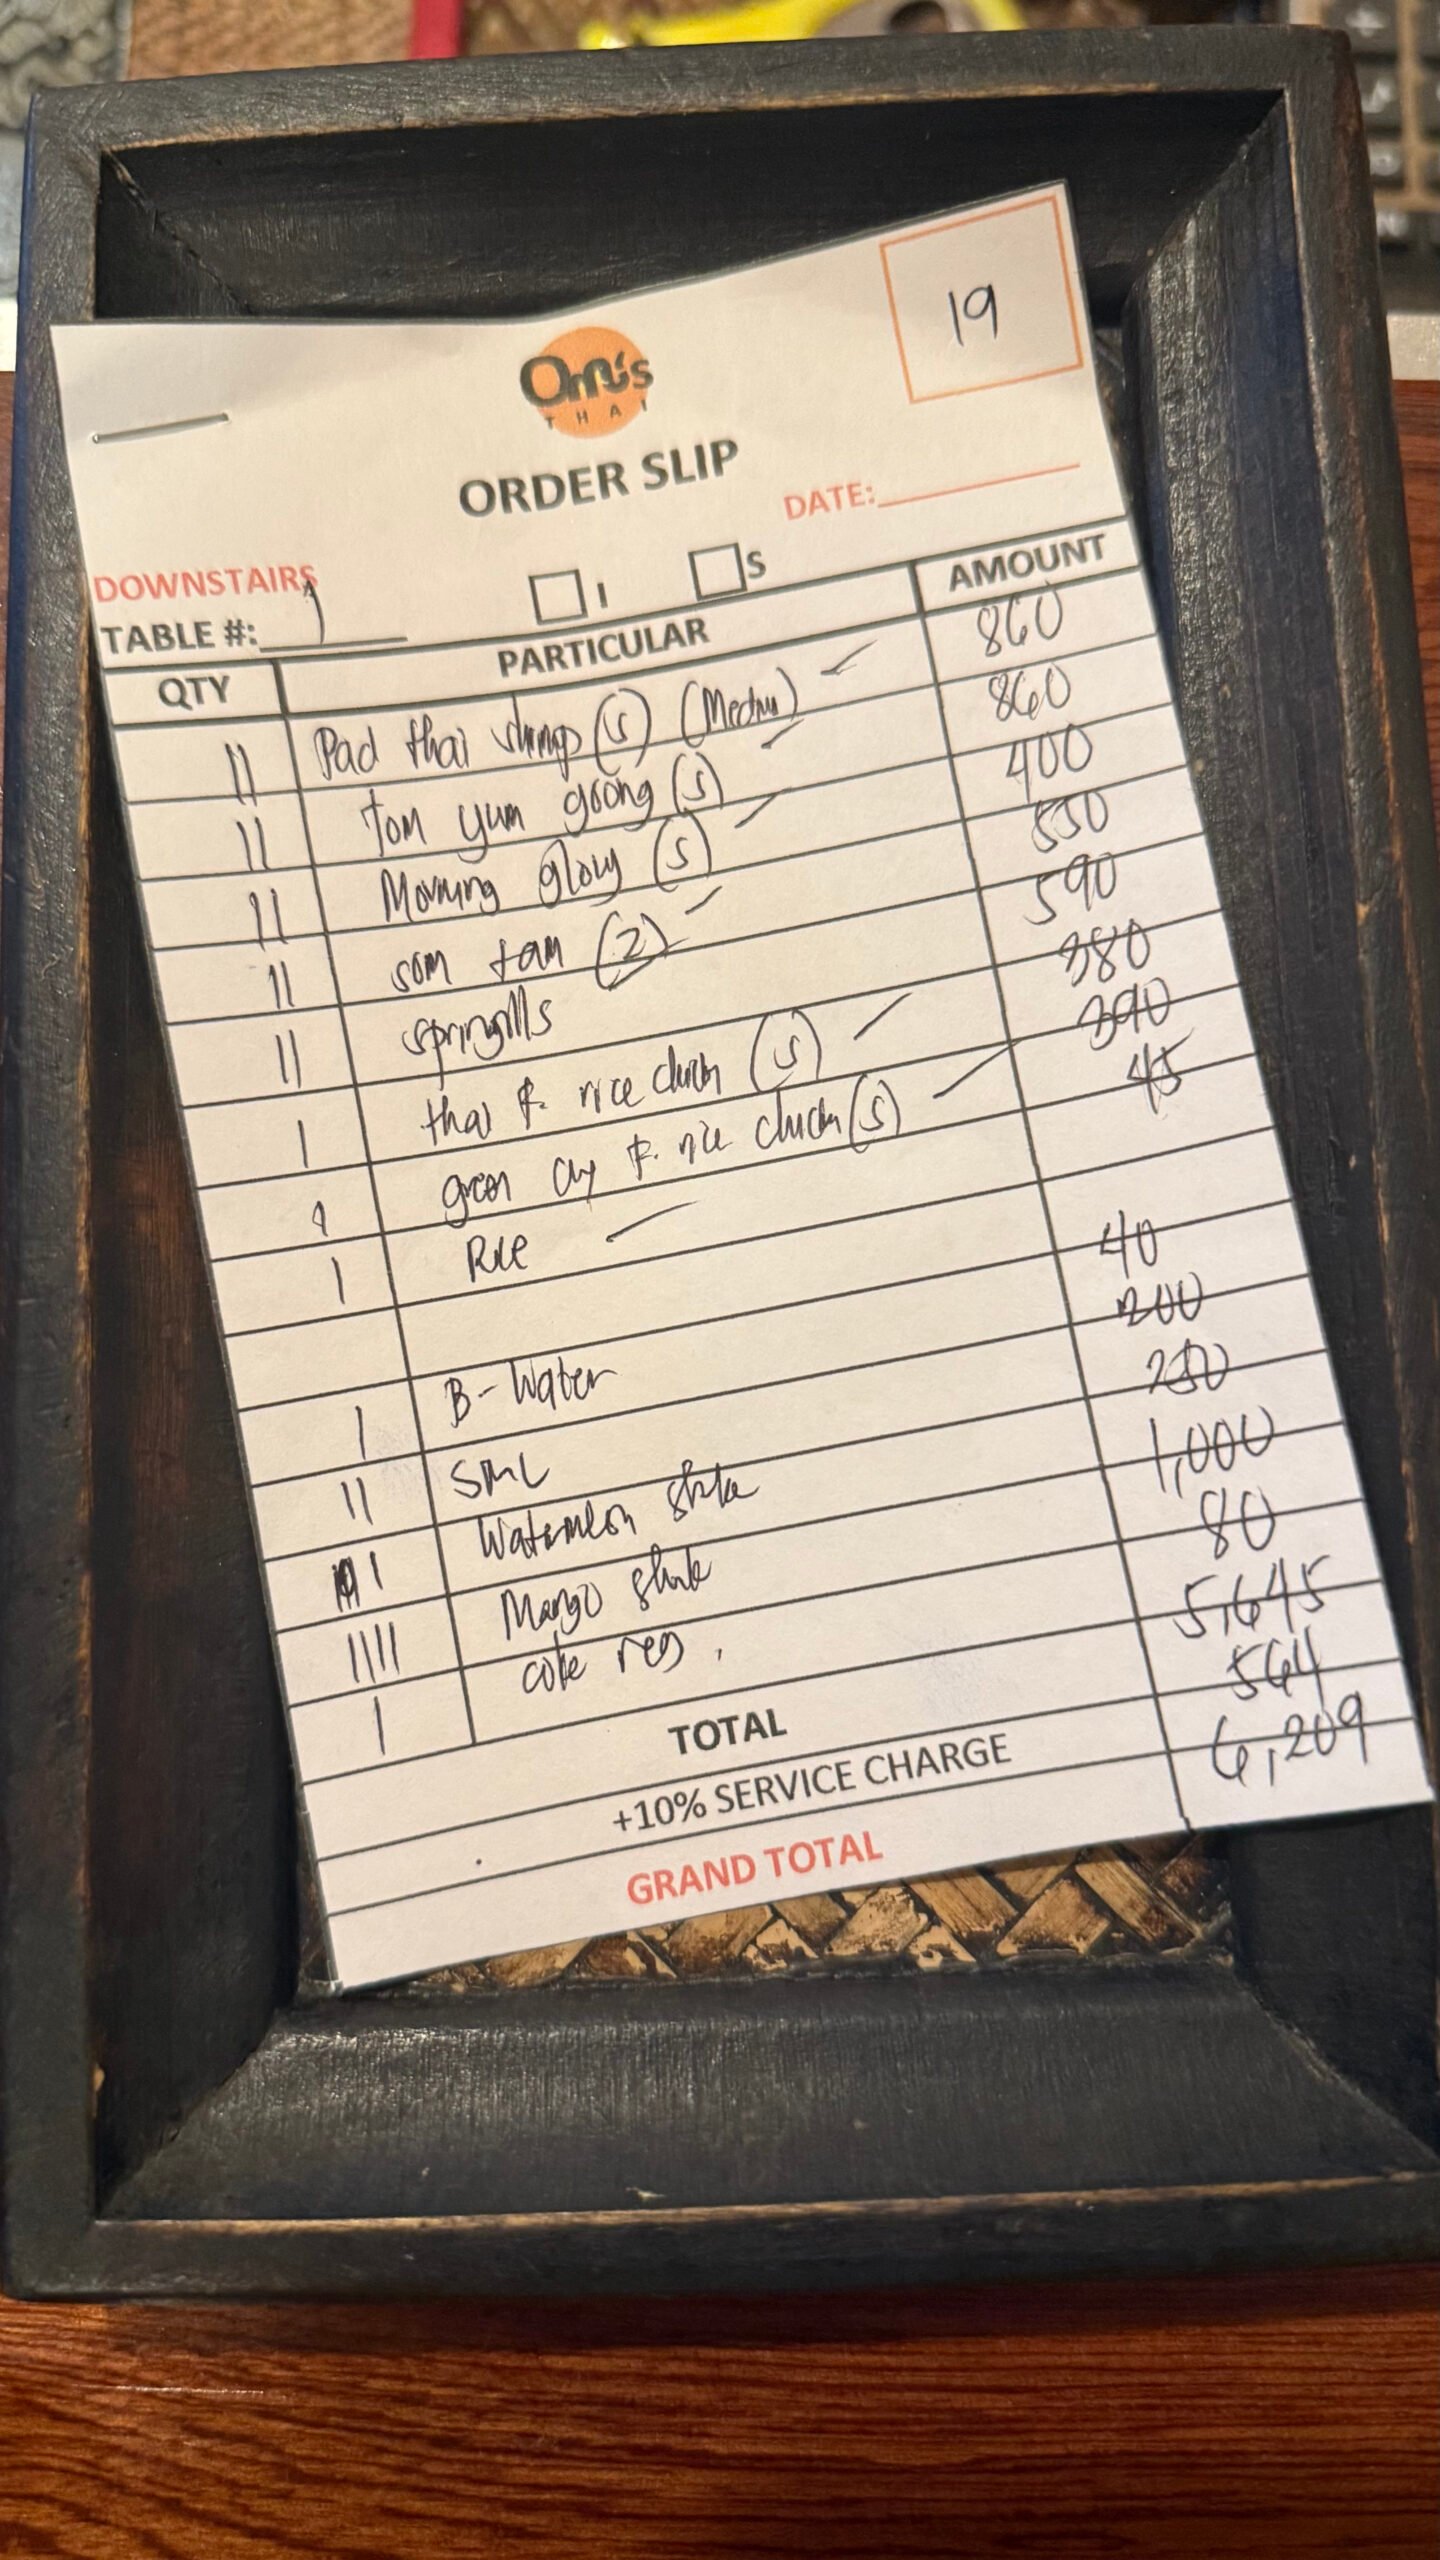 19
Om's
THAI
ORDER SLIP
DATE:
DOWNSTAIRS
I S
TABLE #: 1
QTY PARTICULAR AMOUNT
11 Pad thai shrimp (S) (Medium) 860
11 Tom yum goong (S) 860
11 Morning glory (S) 400
11 som tam (2) 550
11 590
1 thai F. rice (S) 380
1 green F. rice (S) 390
1 Rice 45
1 B-Water 40
11 SML 200
1 Watermelon 250
1111 Mango 1,000
1 coke reg. 80
TOTAL 5,645
+10% SERVICE CHARGE 564
GRAND TOTAL 6,209